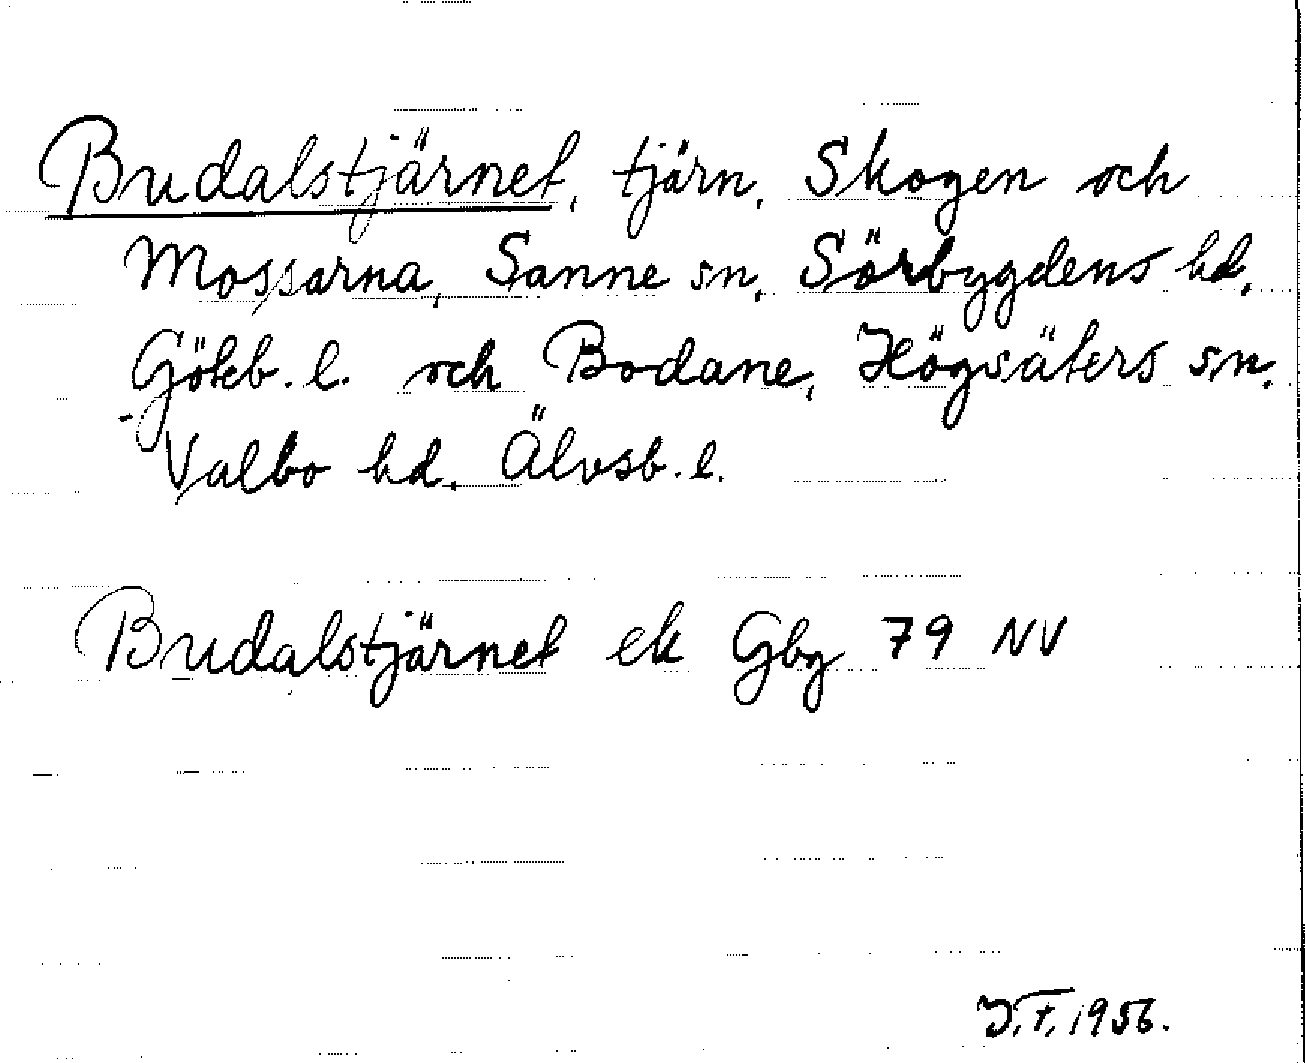 Budalstjärnet, tjärn, Skogen och
Mossarna, Sanne sn, Sörbygdens hd,
Göteb. l. och Bodane, Högsäters sn,
Valbo hd, Älvsb. l.
Budalstjärnet ek Gbg 79 NV
J.F. 1956.